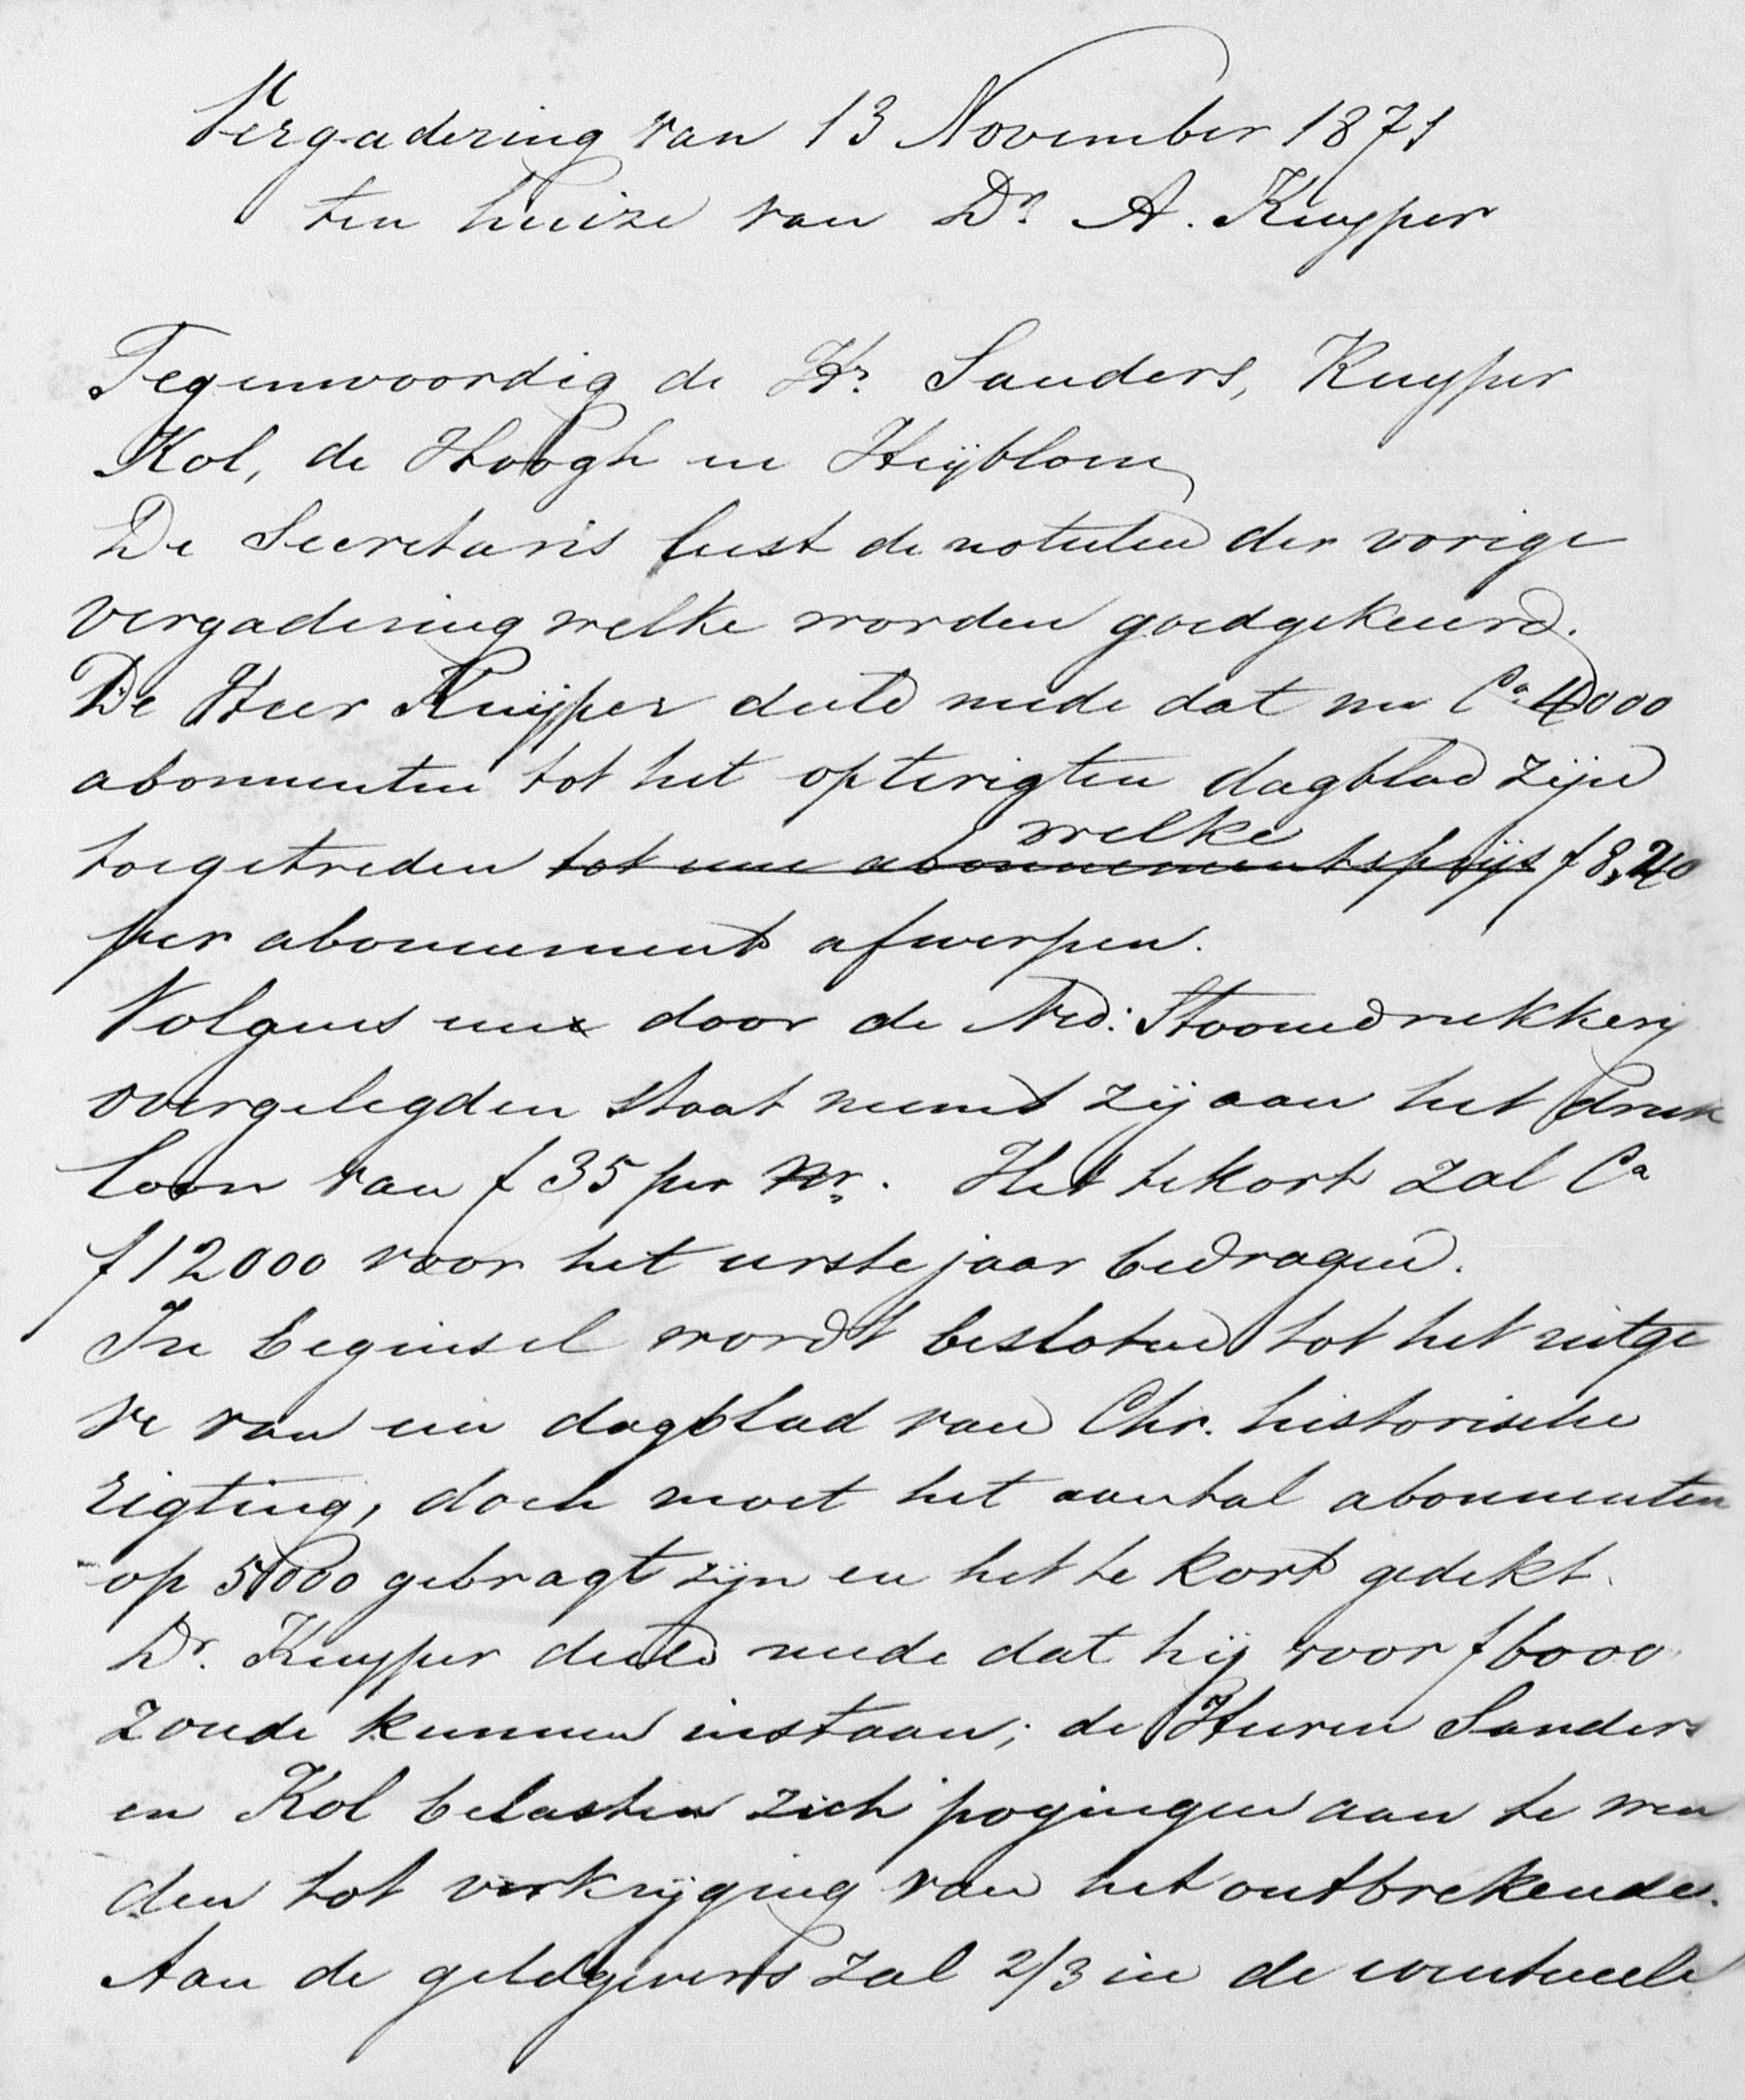 Vergadering van 13 November 1871
ten huize van Dr. A. Kuyper
Tegenwoordig de Hr. Sanders, Kuyper
Kol, de Hoogh en Heijblom
De Secretaris leest de notulen der vorige
vergadering welke worden goedgekeurd.
De Heer Kuijper deeld mede dat nu Ca 4000
abonnenten tot het opterigten dagblad zijn
welke
toegetreden tot een abonnementsprijs f 8,40
per abonnement afwerpen.
Volgens een door de Ned: Stoomdrukkerij
overgelegden staat neemt zij aan het druk
loon van f 35 per Nr. Het tekort zal Ca
f 12000 voor het eerste jaar bedragen.
In beginsel wordt besloten tot het uitge
ve van een dagblad van Chr. historische
rigting, doch moet het aantal abonnenten
op 5000 gebragt zijn en het te kort gedekt.
Dr. Kuyper deeld mede dat hij voor f 6000
zoude kunnen instaan; de Heeren Sanders
en Kol belasten zich pogingen aan te wen
den tot verkrijging van het ontbrekende.
Aan de geldgevers zal 2/3 in de eventueele